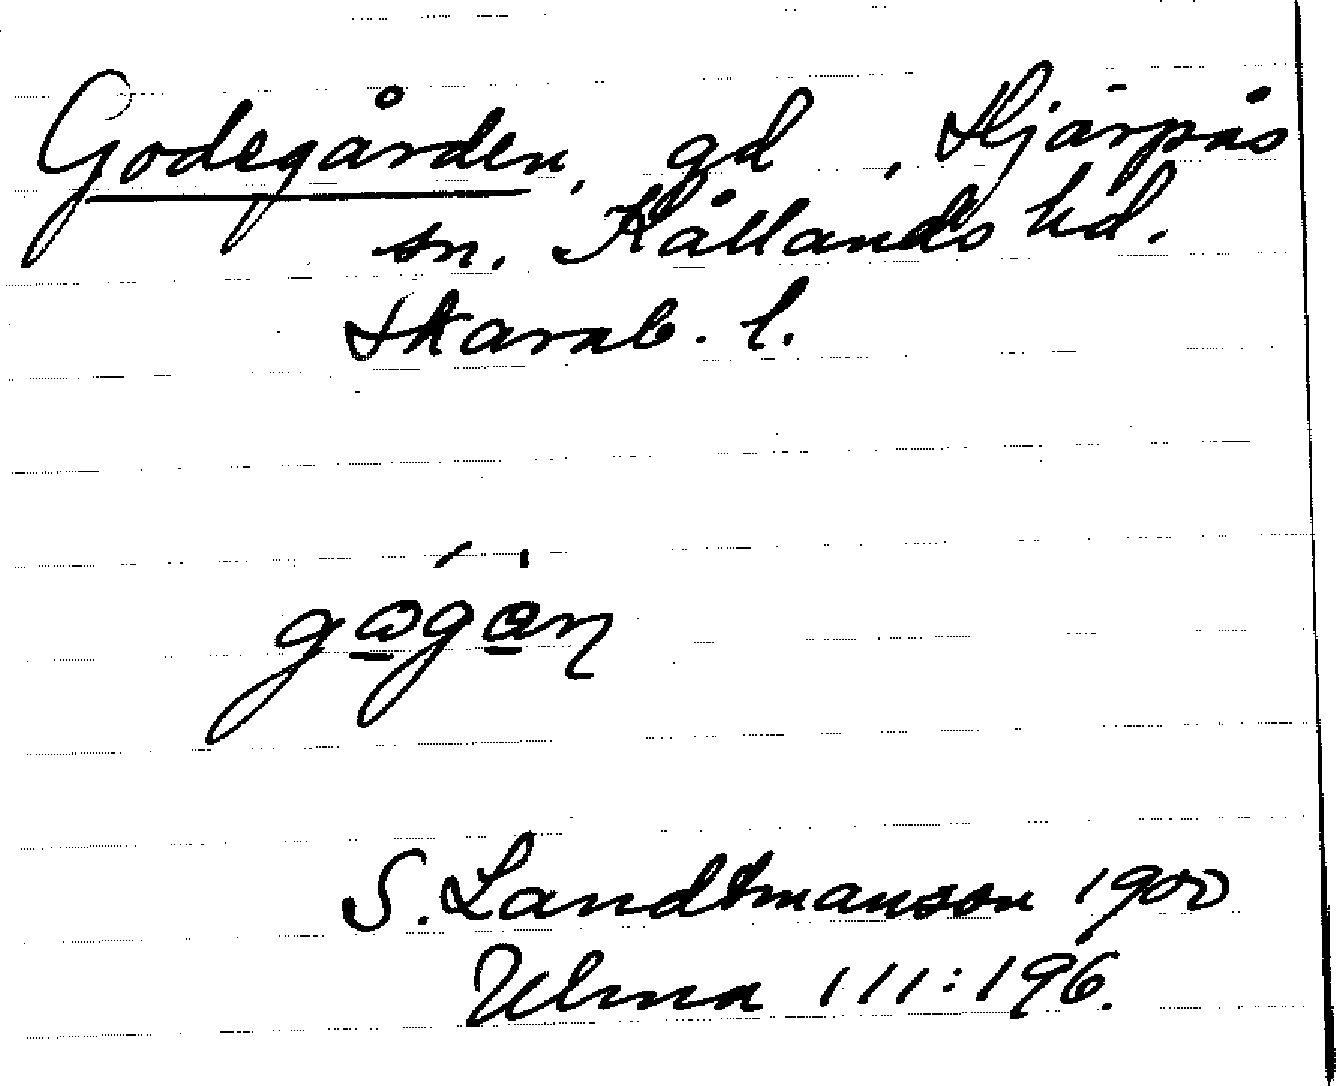 Godegården, gd, Hjärpås
sn. Kållands hd.
Skarab. l.
S. Landtmanson 1900
Ulma 111:196.